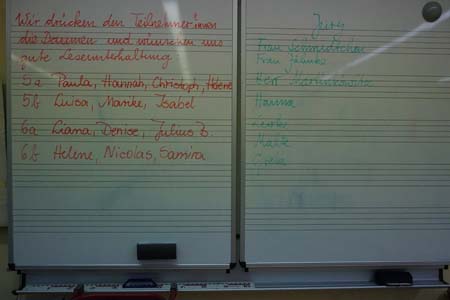 Wir drücken den Teilnehmer*innen
die Daumen und wünschen uns
gute Leseunterhaltung
5a Paula, Hannah, Christoph, Helene
5b Luisa, Marike, Isabel
6a Liana, Denise, Julius B.
6b Helene, Nicolas, Samira
Jury
Frau
Frau
Herr
Hanna